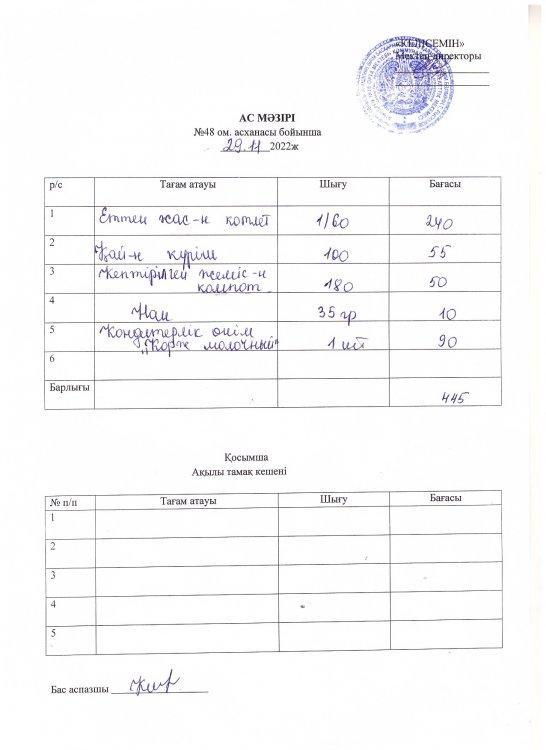 «КЕЛІСЕМІН»
Мектеп директоры
АС МӘЗІРІ
№48 ом. асханасы бойынша
29.11 2022ж
р/с Тағам атауы Шығу Бағасы
1 Еттен жас-н котлет 1/60 240
2 Қай-н күріш 100 55
3 Кептірілген жеміс-н
компот 180 50
4 Нан 35 гр 10
5 Кондитерлік өнім
"Корж молочный" 1 шт 90
6
Барлығы 445
Қосымша
Ақылы тамақ кешені
№ п/п Тағам атауы Шығу Бағасы
1
2
3
4
5
Бас аспазшы